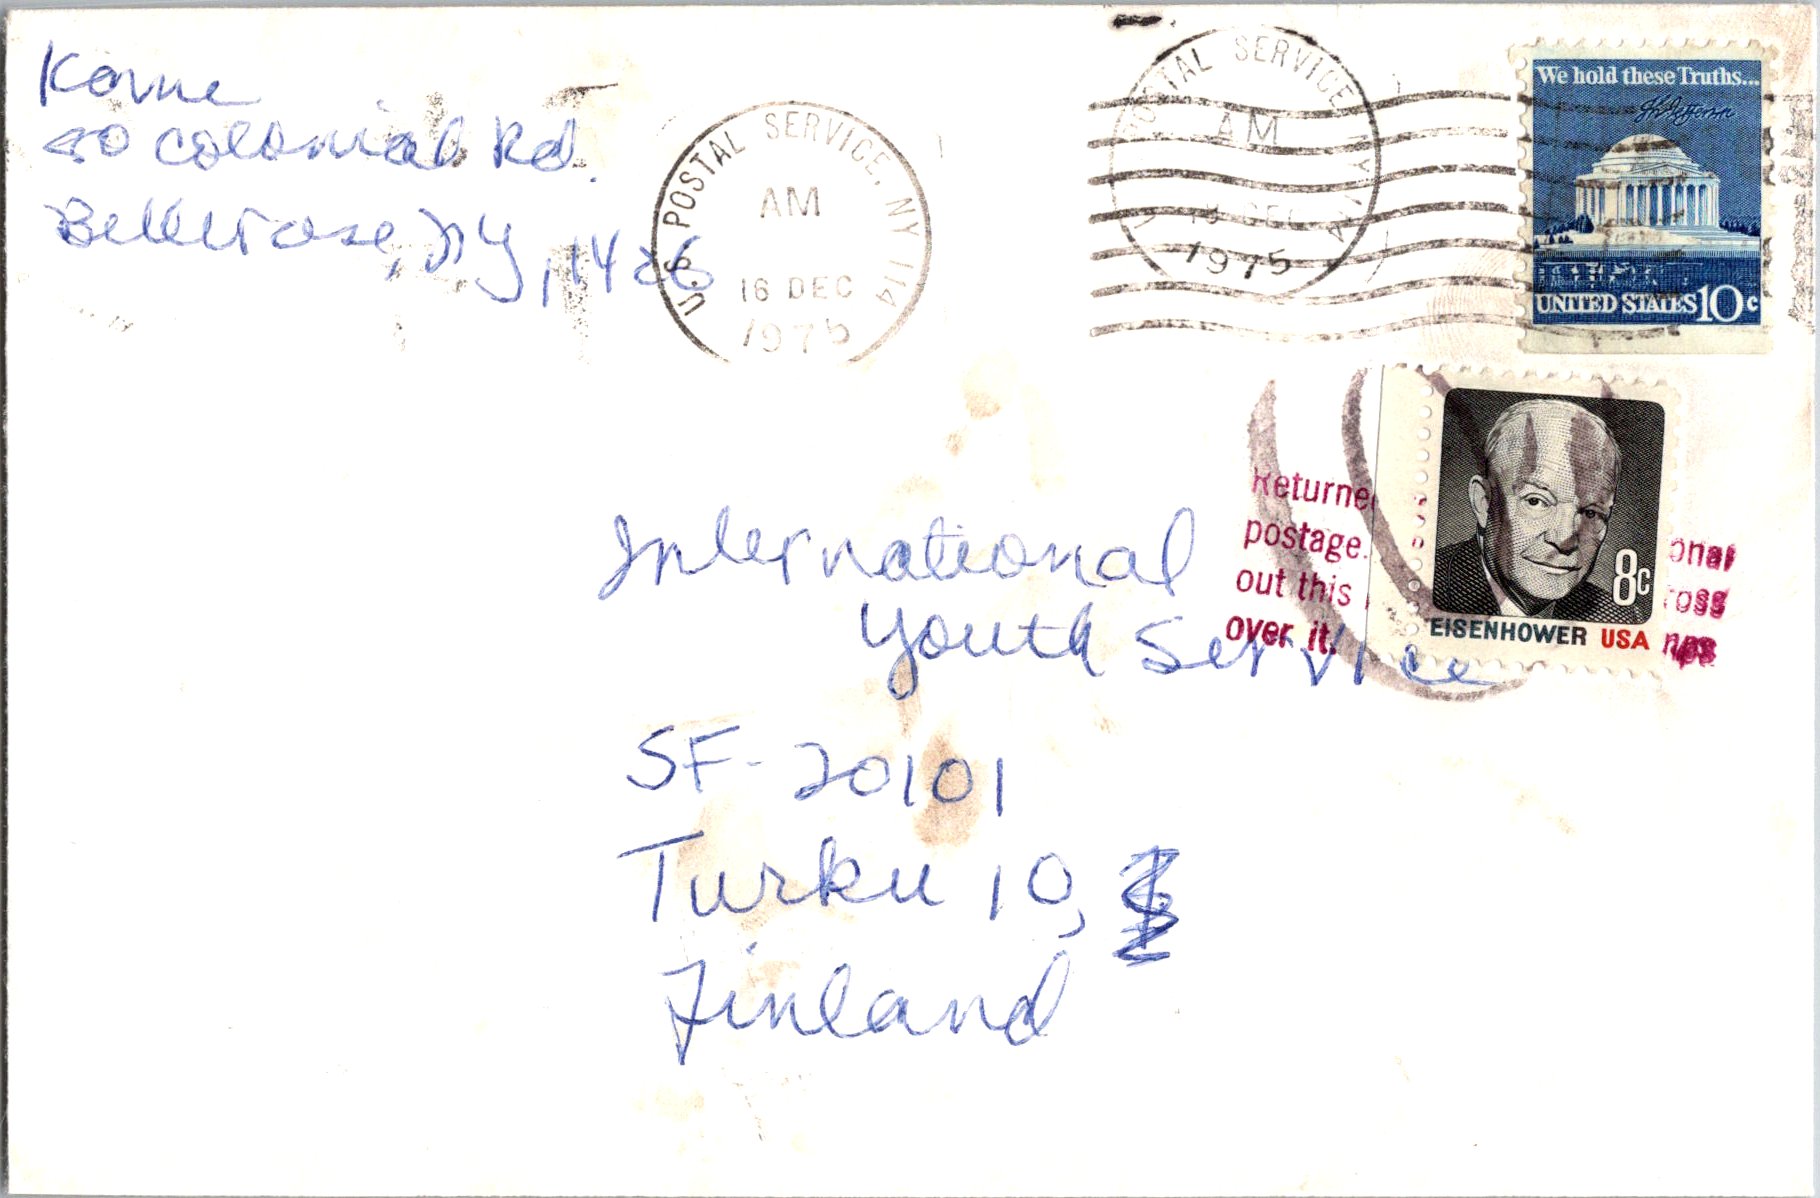 Korne
80 Colonial Rd.
Bellerose, NY, 11426
U.S. POSTAL SERVICE, NY 114
AM
16 DEC
1975
U.S. POSTAL SERVICE NY
AM
DEC
1975
We hold these Truths...
Th Jefferson
UNITED STATES 10c
Returne
postage. onal
out this ross
over it. mps
8c
EISENHOWER USA
International
Youth Service
SF-20101
Turku 10,
Finland